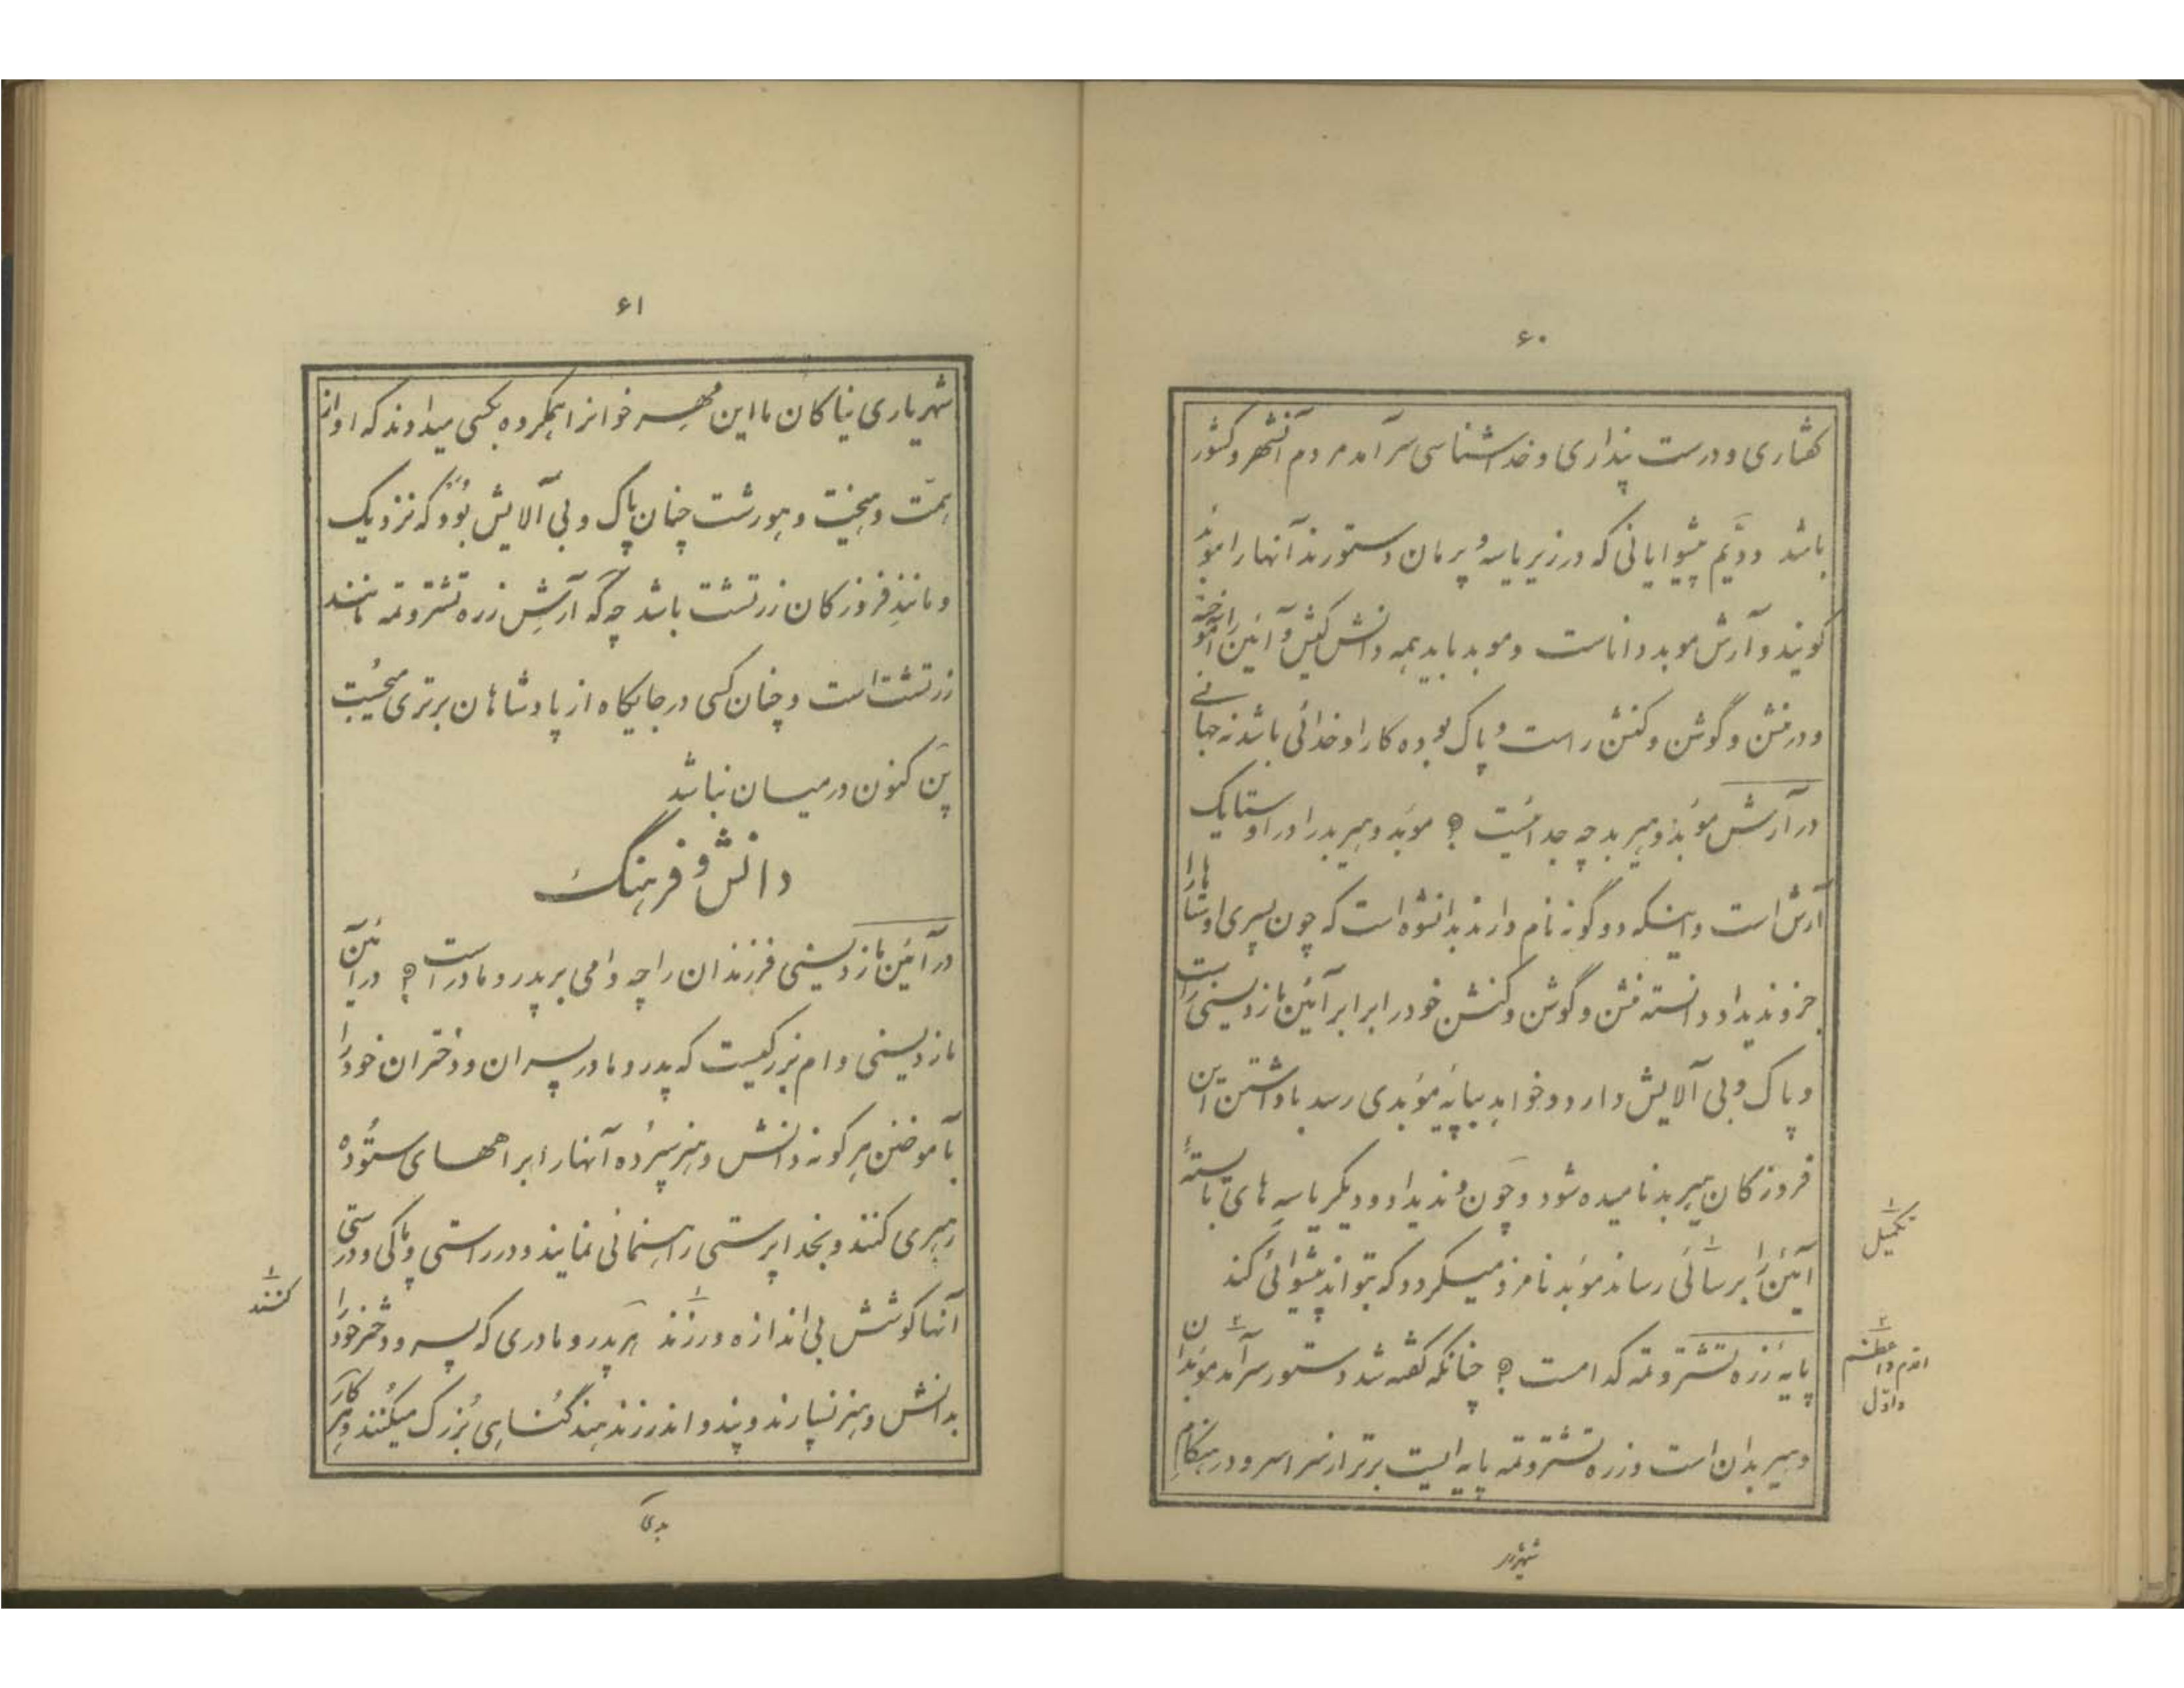 ۶۰
گفتاری و درست پنداری و خداشناسی سرآمد مردم آنشهر و کشور
باشد ودیم پیشوایانی که در زیر یاسه و پرمان دستورند آنها را موبد
گویند و آرش موبد داناست و موبد باید همه دانش کیش و آئین را آموخته
و در منش و گوشن و کنش راست و پاک بوده کار او خدائی باشد نه جهانی
در آرش موبد و هیربد چه جدائیست ؟ موبد و هیربد را در اوستا یک
آرش است و اینکه دو گونه نام دارند بدانشوه است که چون پسری اوستا را
جز وندیداد دانسته منش و گوشن و کنش خود را برابر آئین مازدیسنی راست
و پاک و بی آلایش دارد و خواهد بپایهٔ موبدی رسد با داشتن این
فروزکان هیربد نامیده شود و چون وندیداد و دیگر یاسه های بایستهٔ
آئین را برسائی رساند موبد نامزد میگردد که بتواند پیشوائی کند
پایهٔ زره تشترو تمه کدامست ؟ چنانکه گفته شد دستور سرآمد موبدان
و هیربدان است و زره تشترو تمه پایه ایست برتر از سراسر و در هنگام
۱ تکمیل
۲ اقدم و اعظم
و اوّل
شهریار
۶۱
شهریاری نیاکان ما این مهر خوانرا همگروه بکسی میدادند که او از
همت و هیخت و هورشت چنان پاک و بی آلایش بود که نزدیک
و مانند فروزکان زرتشت باشد چه که آرش زره تشترو تمه مانند
زرتشت است و چنان کسی در جایگاه از پادشاهان برتری میجست
پن کنون در میان نباشد
دانش و فرهنگ
در آئین مازدیسنی فرزندان را چه وامی بر پدر و مادر است ؟ در آئین
مازدیسنی وام بزرگیست که پدر و مادر پسران و دختران خود را
بآموختن هرگونه دانش و هنر سپرده آنها را براههای ستوده
رهبری کنند و بخداپرستی راهنمائی نمایند و در راستی و پاکی و درستی
آنها کوشش بی اندازه ورزند هر پدر و مادری که پسر و دختر خود را
بدانش و هنر نسپارند و پند و اندرز ندهند گناهی بزرگ میکنند و هر کار
۱ کنند
بدی